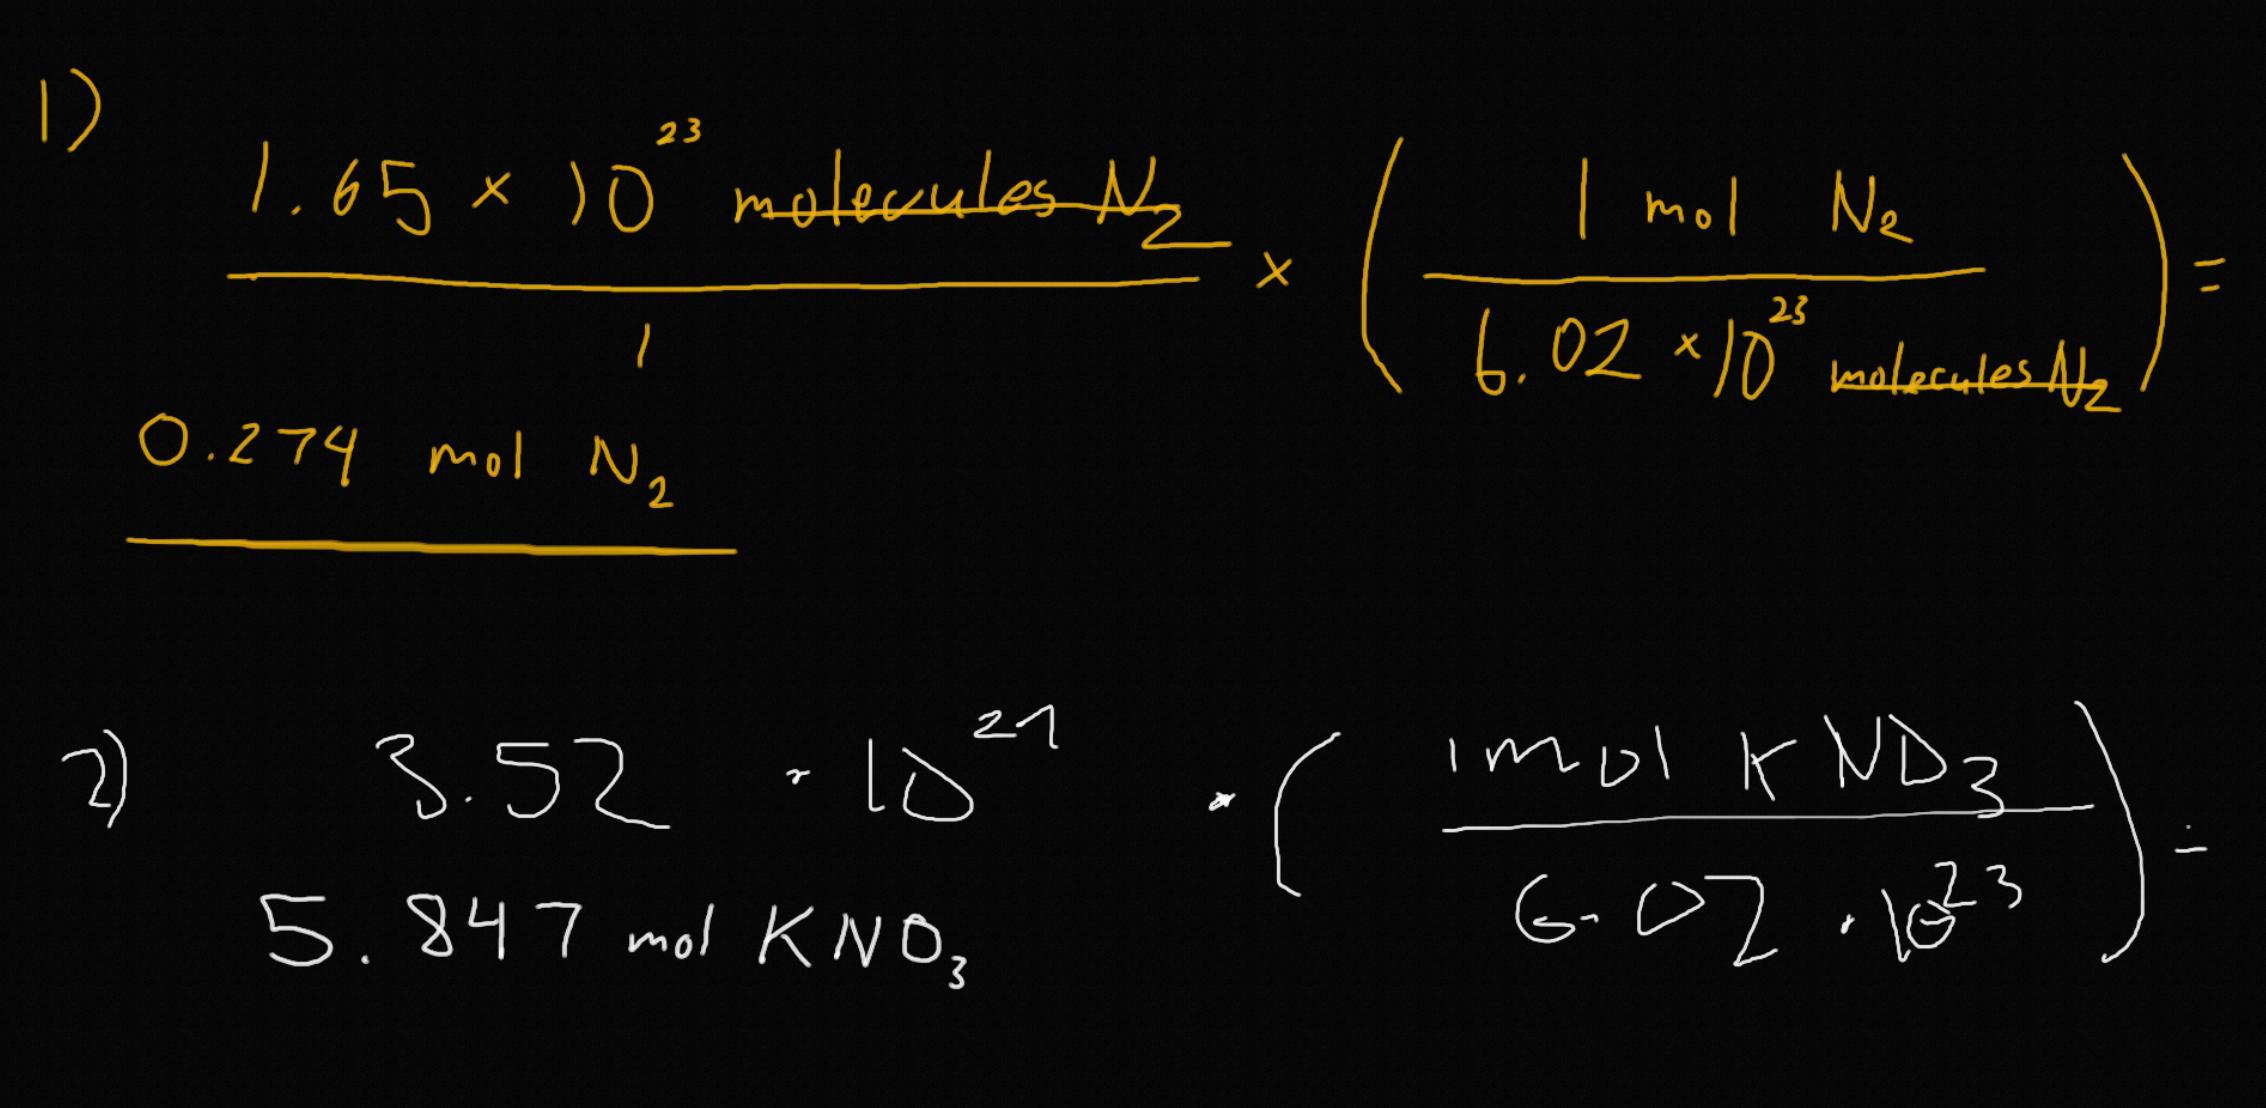 1)
1.65 × 10²³ molecules N₂ / 1 × ( 1 mol N₂ / 6.02 × 10²³ molecules N₂ ) =
0.274 mol N₂
2) 3.52 · 10²¹ · ( 1 mol KNO₃ / 6.02 · 10²³ ) =
5.847 mol KNO₃